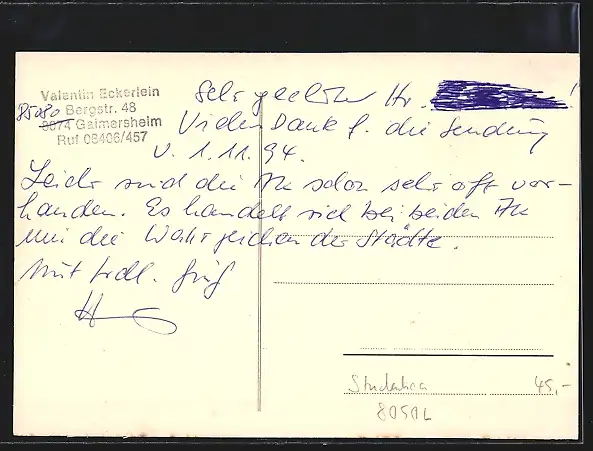 Valentin Eckerlein
85080 Bergstr. 48
8074 Gaimersheim
Ruf 08406/457
Sehr geehrter Hr. !
Vielen Dank f. die Sendung
v. 1.11.94.
Leider sind die AK schon sehr oft vor-
handen. Es handelt sich bei beiden AK
um die Wahrzeichen der Städte.
Mit frdl. Gruß
Studentica 45,-
8050L